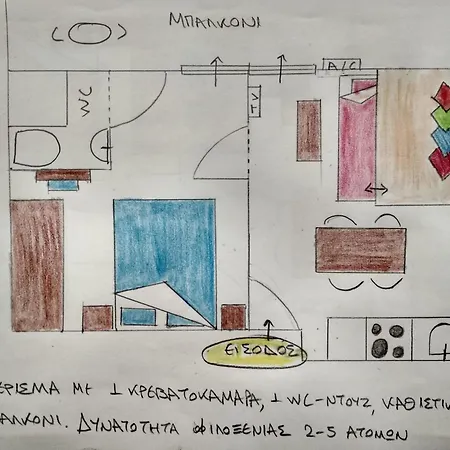 ΜΠΑΛΚΟΝΙ
A/C
WC
TV
ΕΙΣΟΔΟΣ
ΕΡΙΣΜΑ ΜΕ 1 ΚΡΕΒΑΤΟΚΑΜΑΡΑ, 1 WC-ΝΤΟΥΖ, ΚΑΘΙΣΤΙΚ
ΑΛΚΟΝΙ. ΔΥΝΑΤΟΤΗΤΑ ΦΙΛΟΞΕΝΙΑΣ 2-5 ΑΤΟΜΩΝ